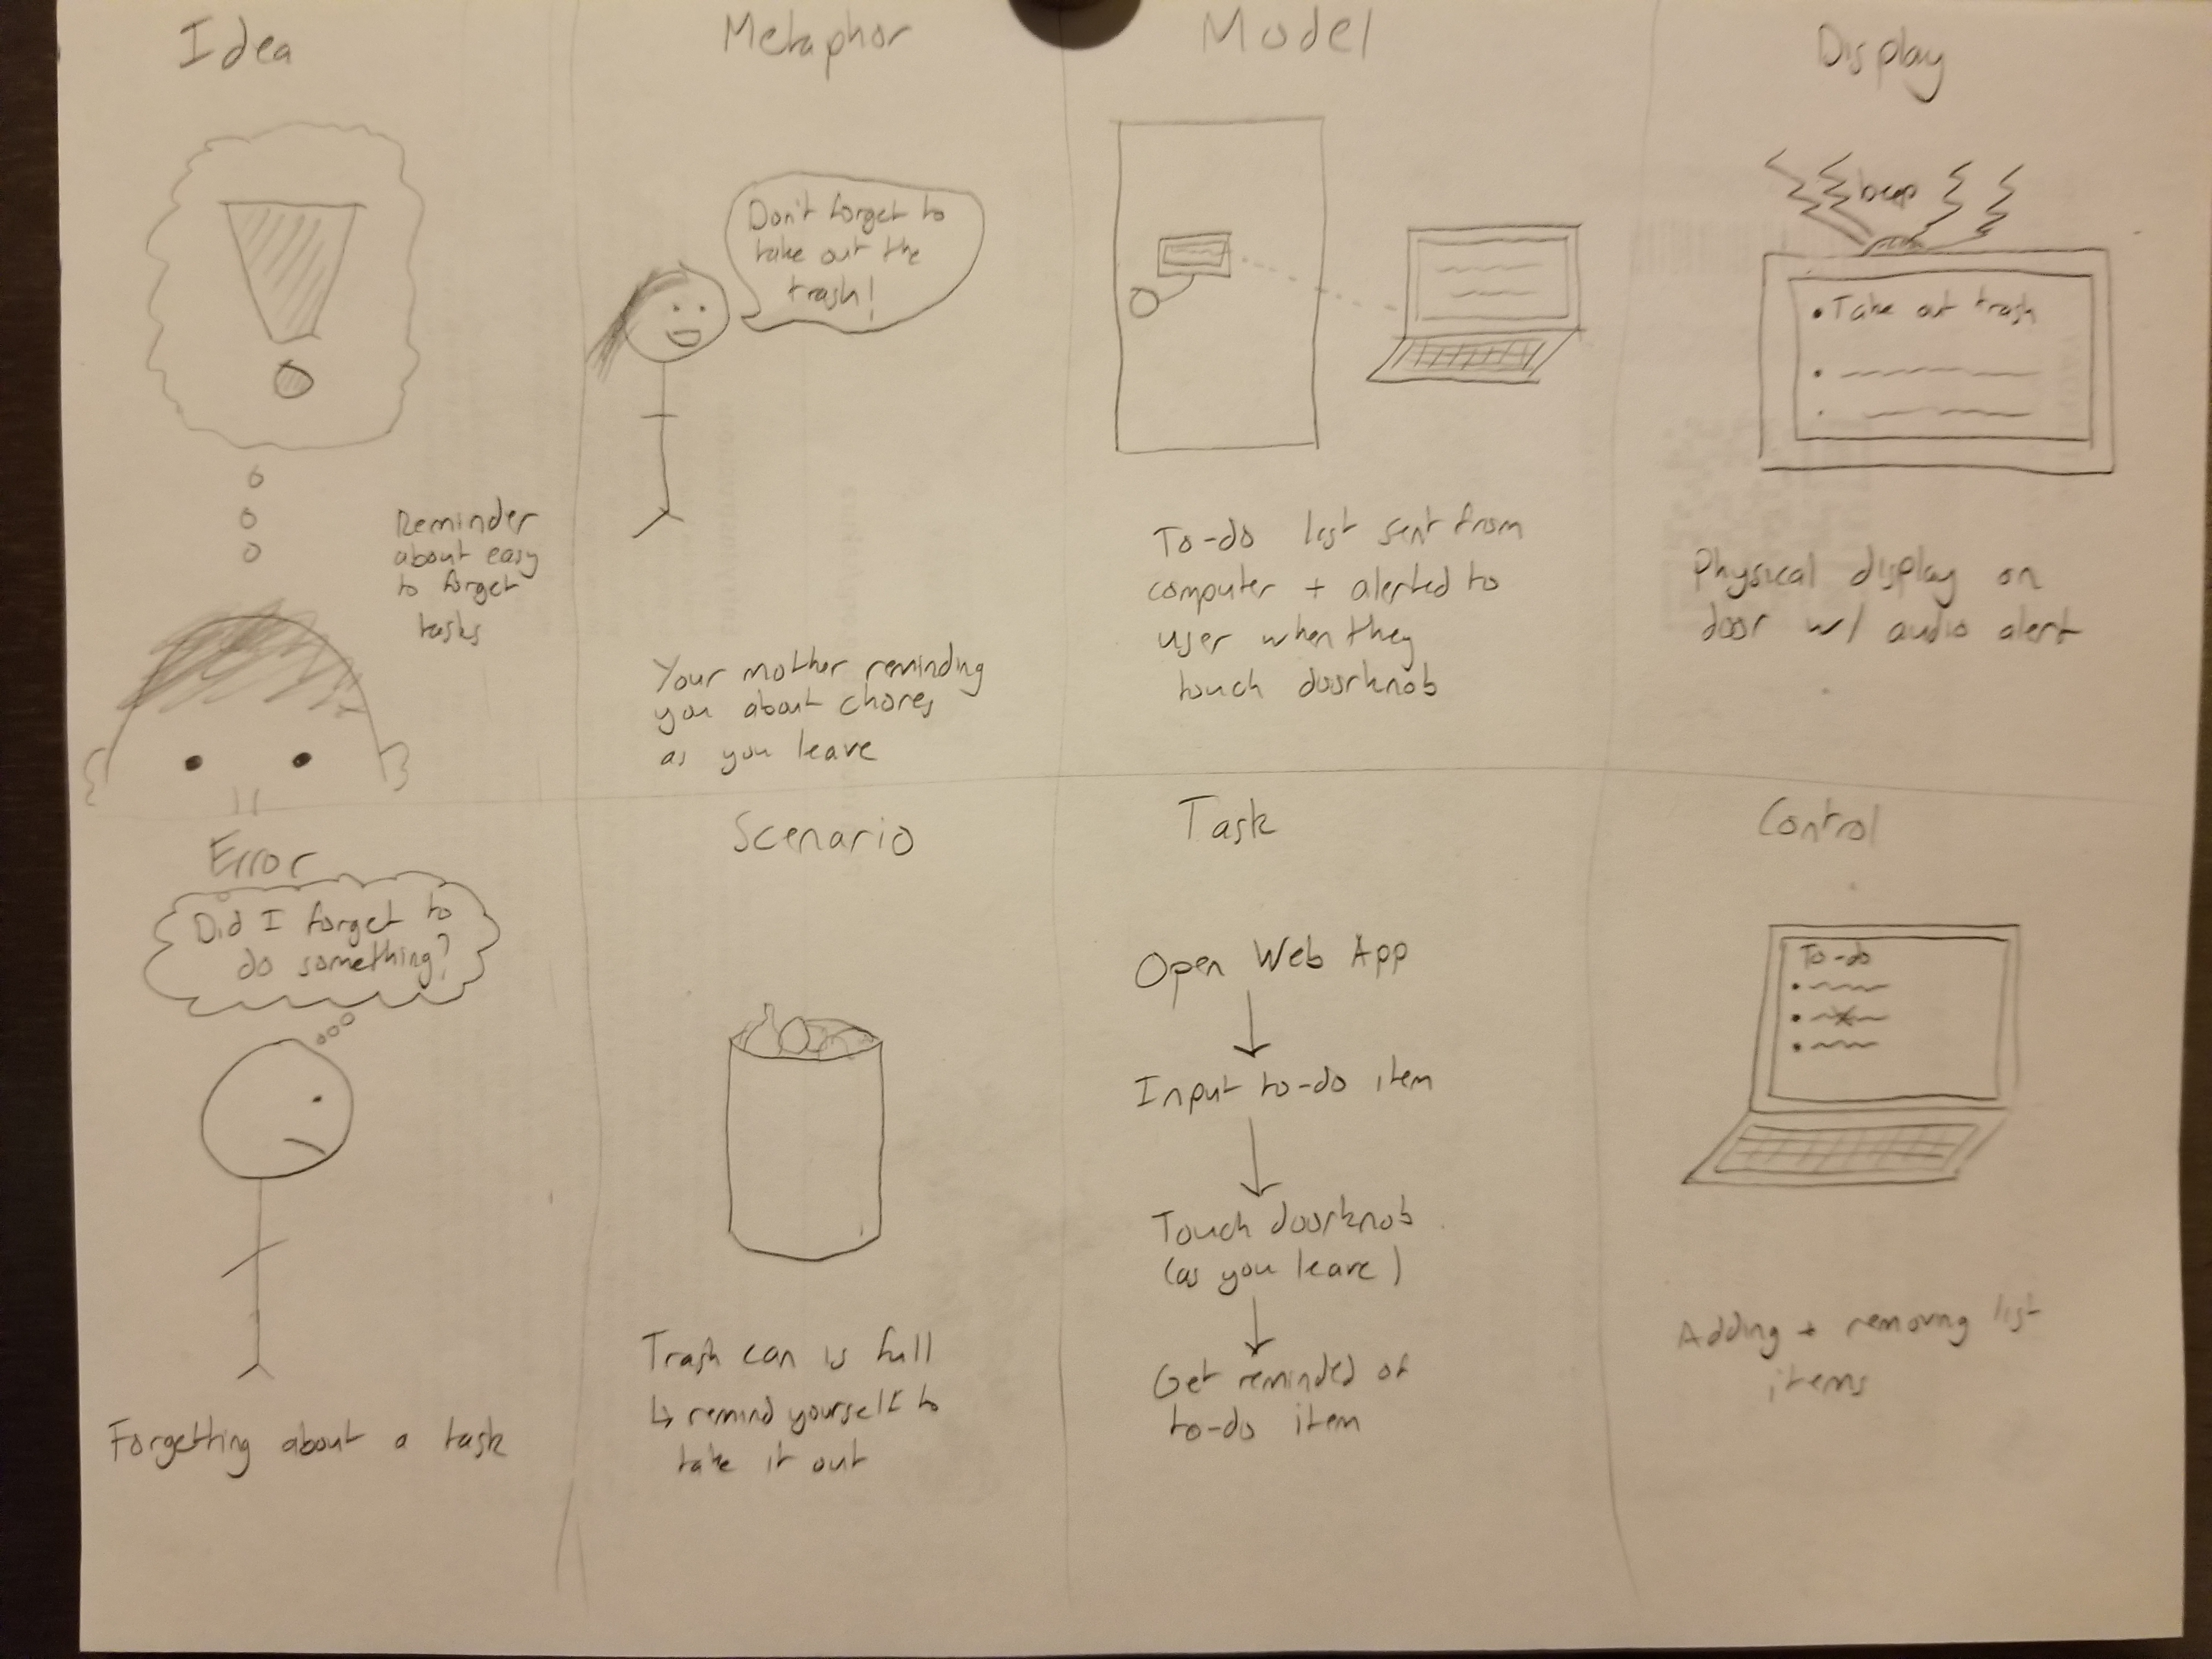 Idea
Reminder
about easy
to forget
tasks
Metaphor
Don't forget to
take out the
trash!
Your mother reminding
you about chores
as you leave
Model
To-do list sent from
computer + alerted to
user when they
touch doorknob
Display
beep
• Take out trash
Physical display on
door w/ audio alert
Error
Did I forget to
do something?
Forgetting about a task
Scenario
Trash can is full
↳ remind yourself to
take it out
Task
Open Web App
↓
Input to-do item
↓
Touch doorknob
(as you leave)
↓
Get reminded of
to-do item
Control
To-do
Adding + removing list
items